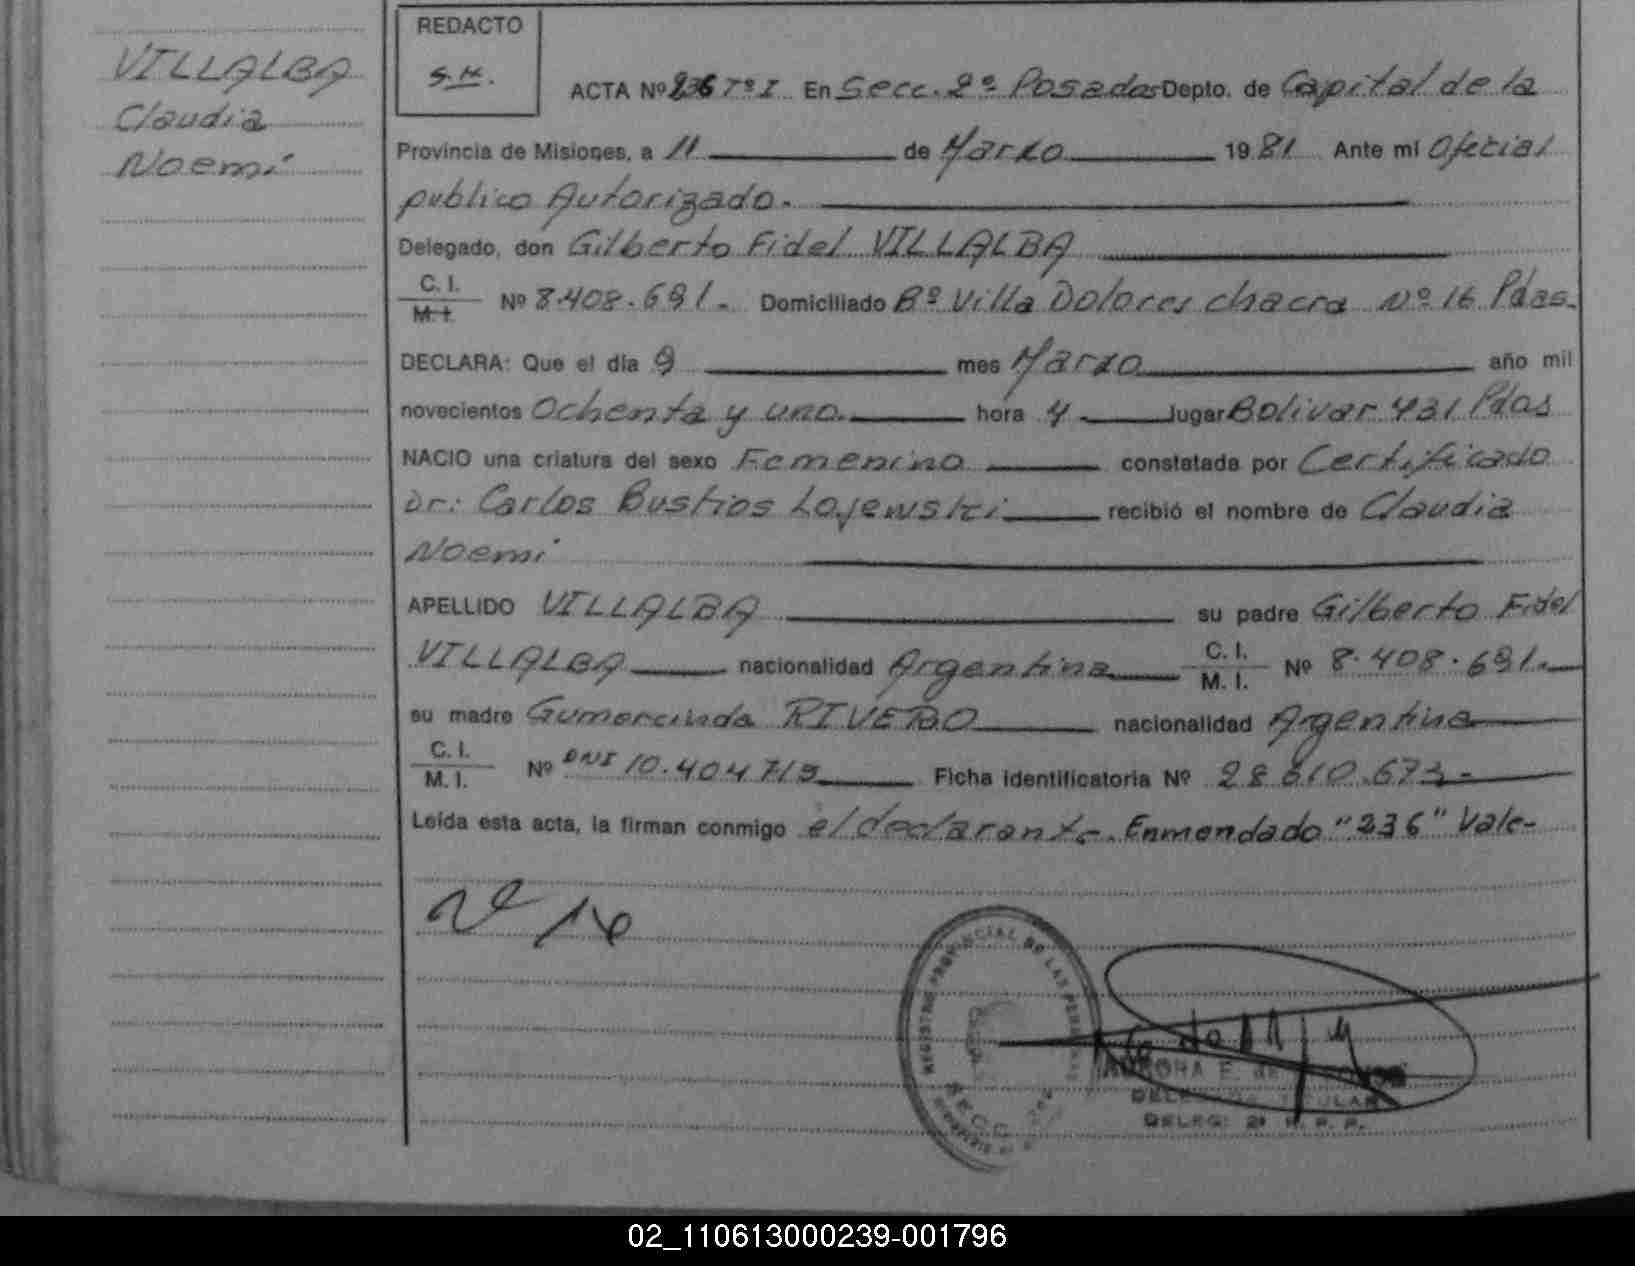 VILLALBA
Claudia
Noemí
REDACTO
S.M.
ACTA Nº 236 Tº I En Secc. 2º Posadas Depto. de Capital de la
Provincia de Misiones, a 11 de Marzo 1981 Ante mí Oficial
público Autorizado.
Delegado, don Gilberto Fidel VILLALBA
C. I.
M. I. Nº 8.408.691.- Domiciliado Bº Villa Dolores chacra Nº 16 Pdas.
DECLARA: Que el día 9 mes Marzo año mil
novecientos Ochenta y uno. hora 4 lugar Bolivar 431 Pdas
NACIO una criatura del sexo Femenino constatada por Certificado
Dr: Carlos Bustios Lojewski recibió el nombre de Claudia
Noemi
APELLIDO VILLALBA su padre Gilberto Fidel
VILLALBA nacionalidad Argentina C. I.
M. I. Nº 8.408.691.-
su madre Gumercinda RIVERO nacionalidad Argentina
C. I.
M. I. Nº DNI 10.404713 Ficha Identificatoria Nº 28.610.673-
Leída esta acta, la firman conmigo el declarante. Enmendado "236" Vale-
REGISTRO PROVINCIAL DE LAS PERSONAS
SECC.
AURORA E. de
DELEGADA TITULAR
DELEG. 2ª R. P. P.
02_110613000239-001796